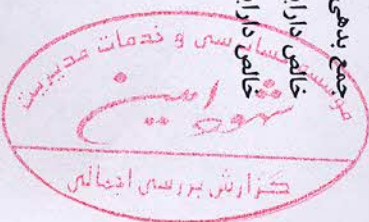 جمع بدهی
خالص دارای
خالص دارای
موسسه حسابرسی و خدمات مدیریت
شهود امین
گزارش بررسی اجمالی